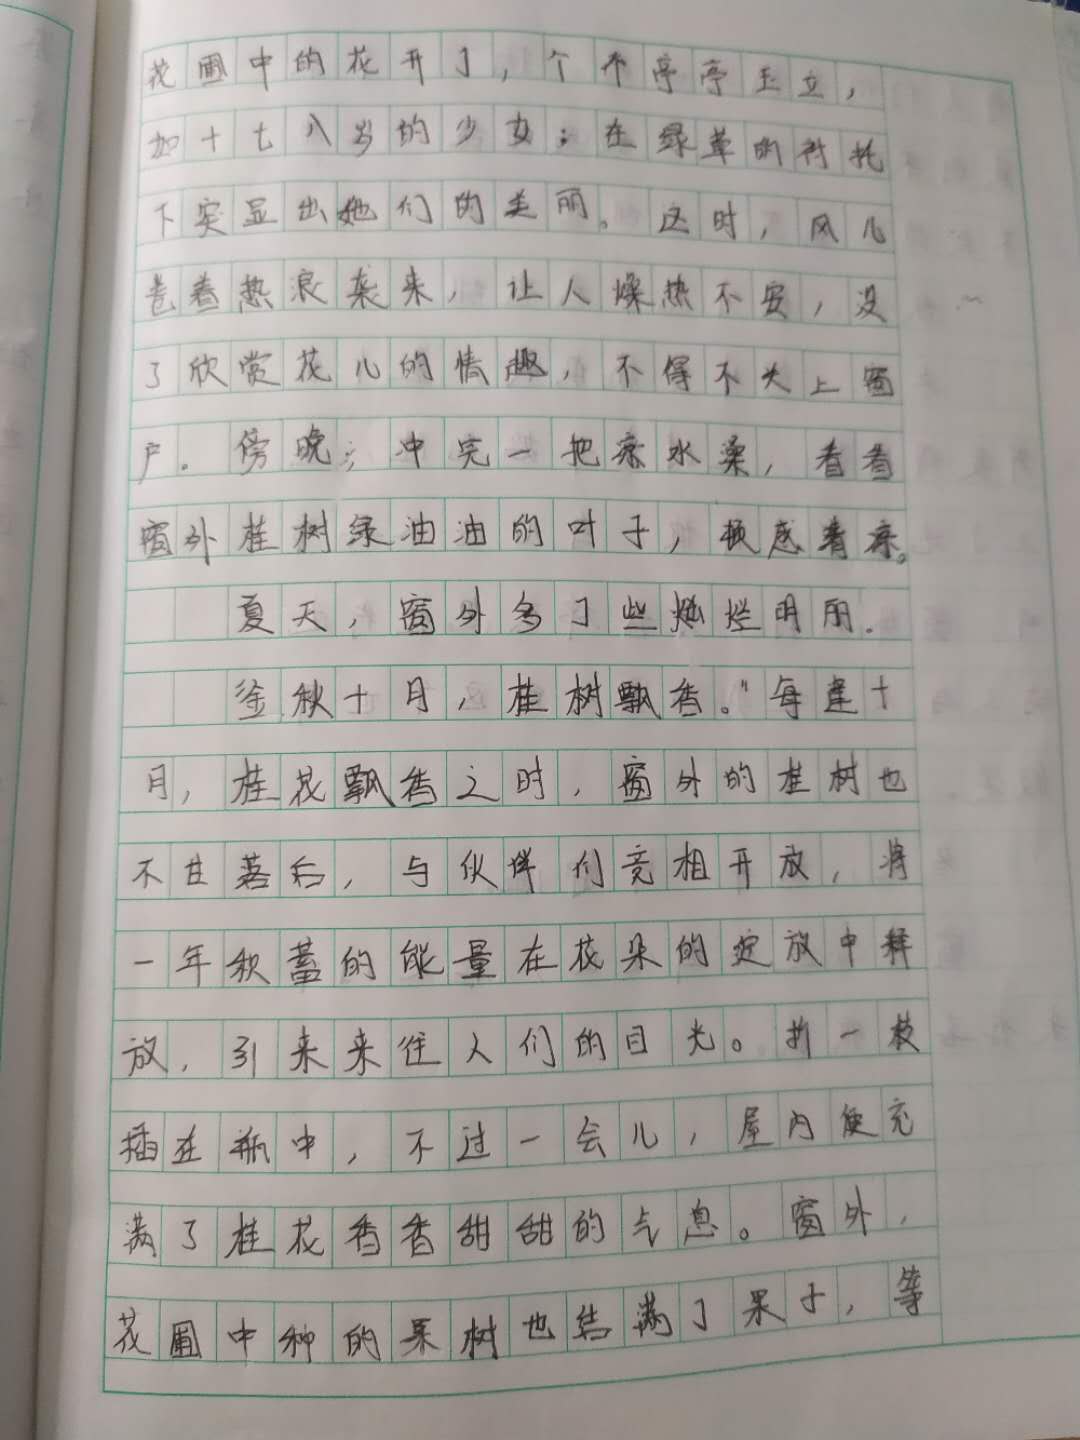 花圃中的花开了，个个亭亭玉立，
如十七八岁的少女；在绿草的衬托
下突显出她们的美丽。这时，风儿
卷着热浪袭来，让人燥热不安，没
了欣赏花儿的情趣，不得不关上窗
户。傍晚；冲完一把凉水澡，看着
窗外桂树绿油油的叶子，顿感清凉。
夏天，窗外多了些灿烂明丽。
金秋十月，桂树飘香。"每逢十
月，桂花飘香之时，窗外的桂树也
不甘落后，与伙伴们竞相开放，将
一年积蓄的能量在花朵的绽放中释
放，引来来往人们的目光。折一枝
插在瓶中，不过一会儿，屋内便充
满了桂花香香甜甜的气息。窗外，
花圃中种的果树也结满了果子，等